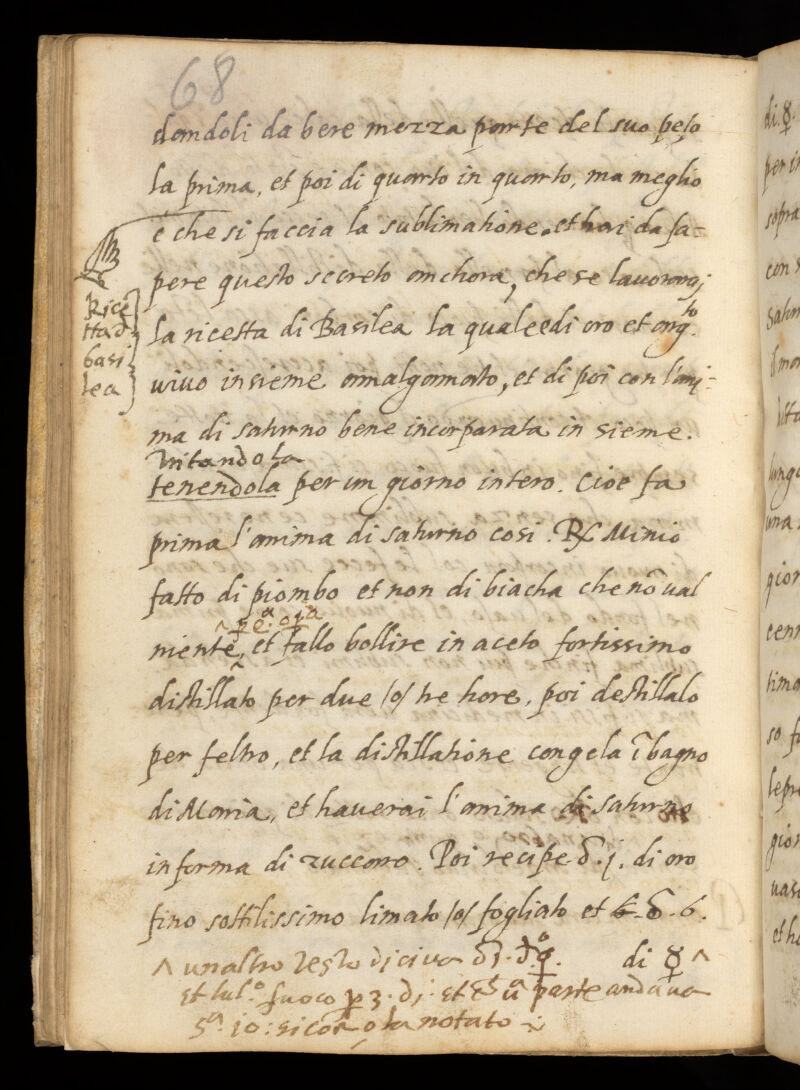 68
dandoli da bere mezza parte del suo peso
la prima, et poi di quarto in quarto, ma meglio
è che si faccia la sublimatione. et hai da sa=
pere questo secreto anchora, che se lavorarai
Rice
tta d
basi
lea
la ricetta di Basilea la quale e di oro et arg.to
vivo insieme amalgamato, et di poi con l'ani=
ma di saturno bene incorparata in sieme.
tenendola per un giorno intero. Cioe fa
prima l'anima di saturno cosi. ℞ Minio
fatto di piombo et non di biacha che nõ val
niente, et fallo bollire in aceto fortissimo
distillato per due /o/ tre hore, poi destillalo
per feltro, et la distillatione congela ĩ bagno
di Maria, et haverai l'anima di saturno
in forma di zuccaro. Poi recipe j. di oro
fino sottilissimo limato /o/ fogliato et 6.
^ unaltro testo diceva di ☿ ^
fuoco et parte andava
notato